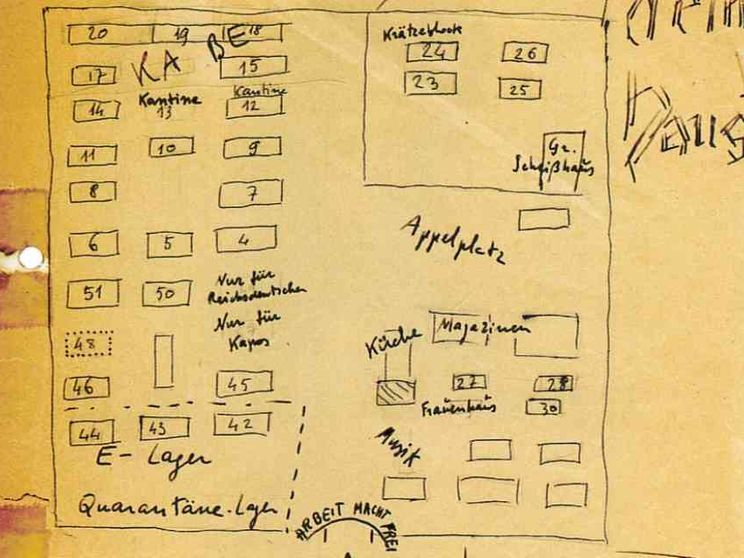 20 19 18
KA BE
17 15
Kantine
14 13 12
Kantine
11 10 9
8 7
6 5 4
51 50
Nur für
Reichsdeutschen
Nur für
Kapos
48
46 45
44 43 42
E-Lager
Quarantäne-Lager
Krätzeblock
24 26
23 25
Gr.
Scheißhaus
Appelplatz
Magazinen
27 28
Frauenhaus 30
Musik
ARBEIT MACHT FREI